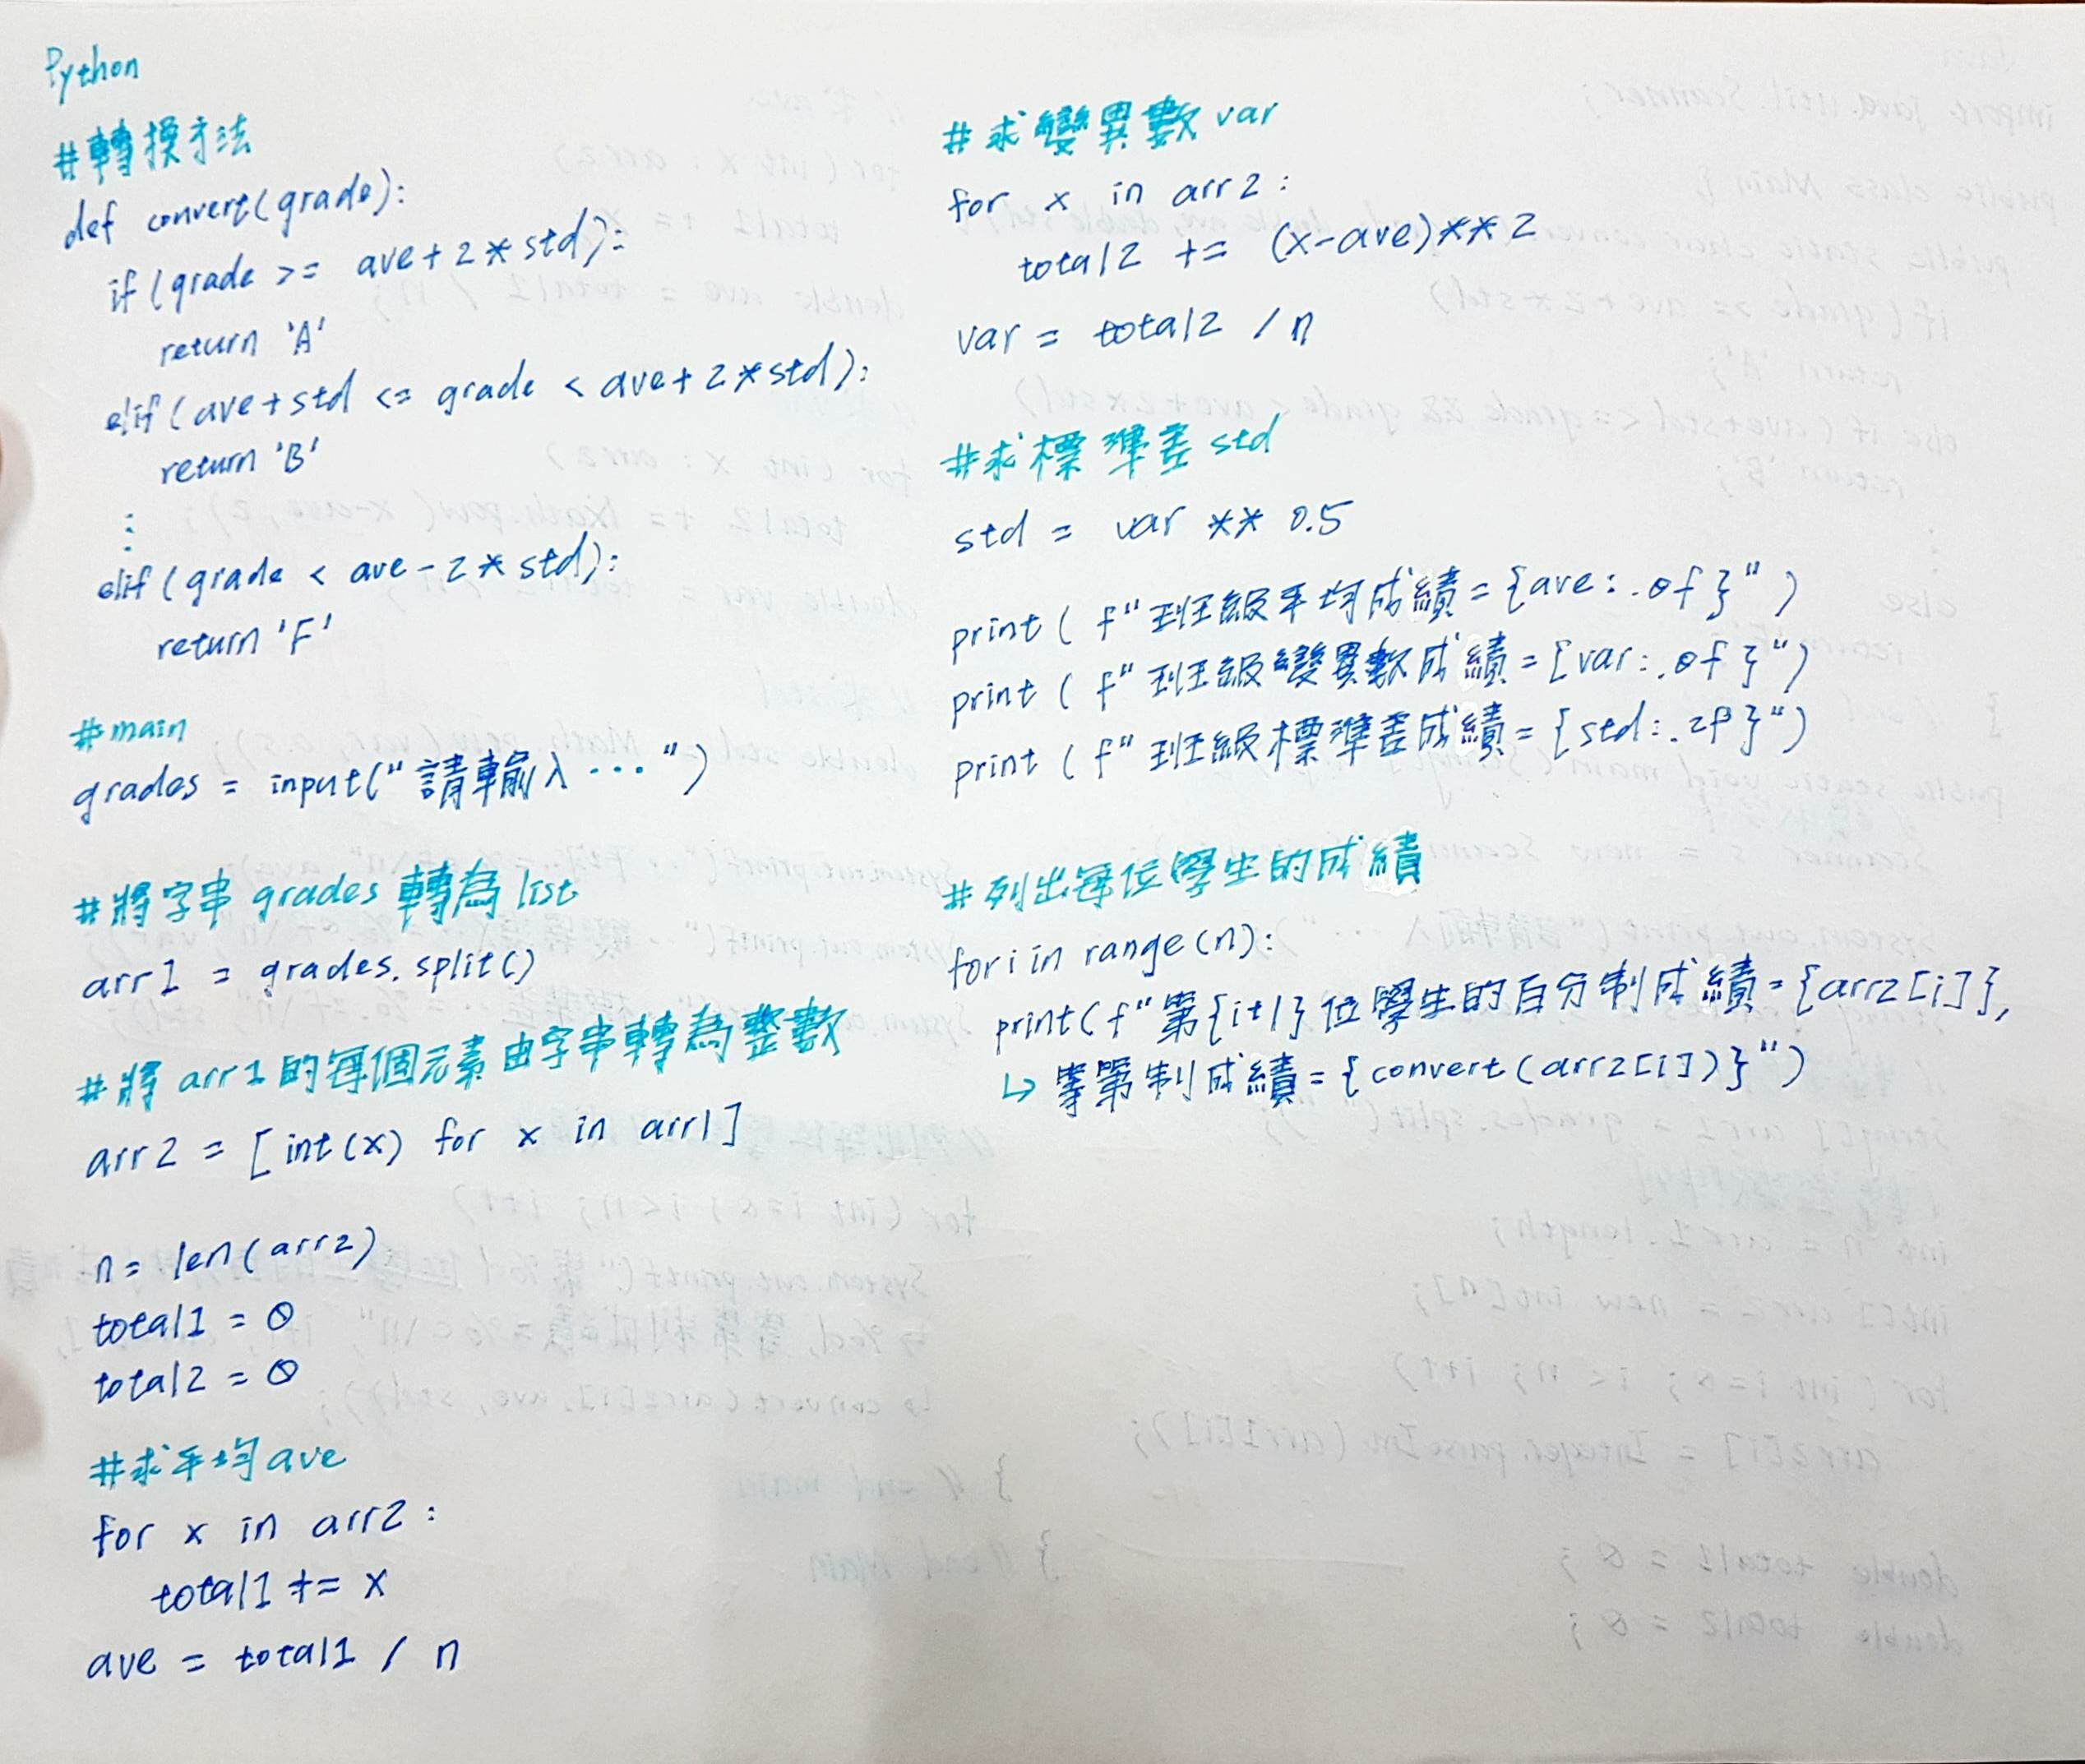 Python
#轉換方法
def convert(grade):
if(grade >= ave+2*std):
return 'A'
elif(ave+std <= grade < ave+2*std):
return 'B'
⋮
elif(grade < ave-2*std):
return 'F'
#main
grades = input("請輸入...")
#將字串 grades 轉為 list
arr1 = grades.split()
#將 arr1 的每個元素由字串轉為整數
arr2 = [int(x) for x in arr1]
n = len(arr2)
total1 = 0
total2 = 0
#求平均 ave
for x in arr2:
total1 += x
ave = total1 / n
#求變異數 var
for x in arr2:
total2 += (x-ave)**2
var = total2 / n
#求標準差 std
std = var ** 0.5
print(f"班級平均成績={ave:.0f}")
print(f"班級變異數成績={var:.0f}")
print(f"班級標準差成績={std:.2f}")
#列出每位學生的成績
for i in range(n):
print(f"第{i+1}位學生的百分制成績={arr2[i]},
↳ 等第制成績={convert(arr2[i])}")